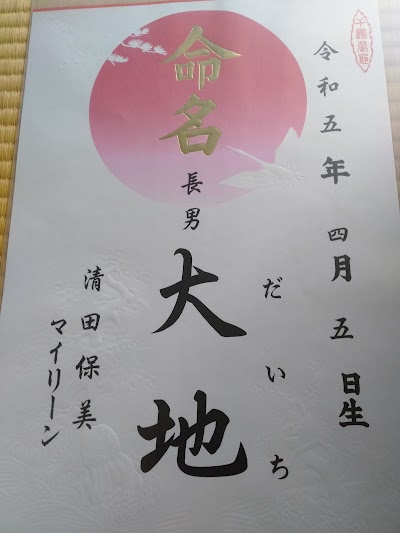 令和五年 四月 五 日生
命名
長男 大地
だいち
清田保美
マイリーン